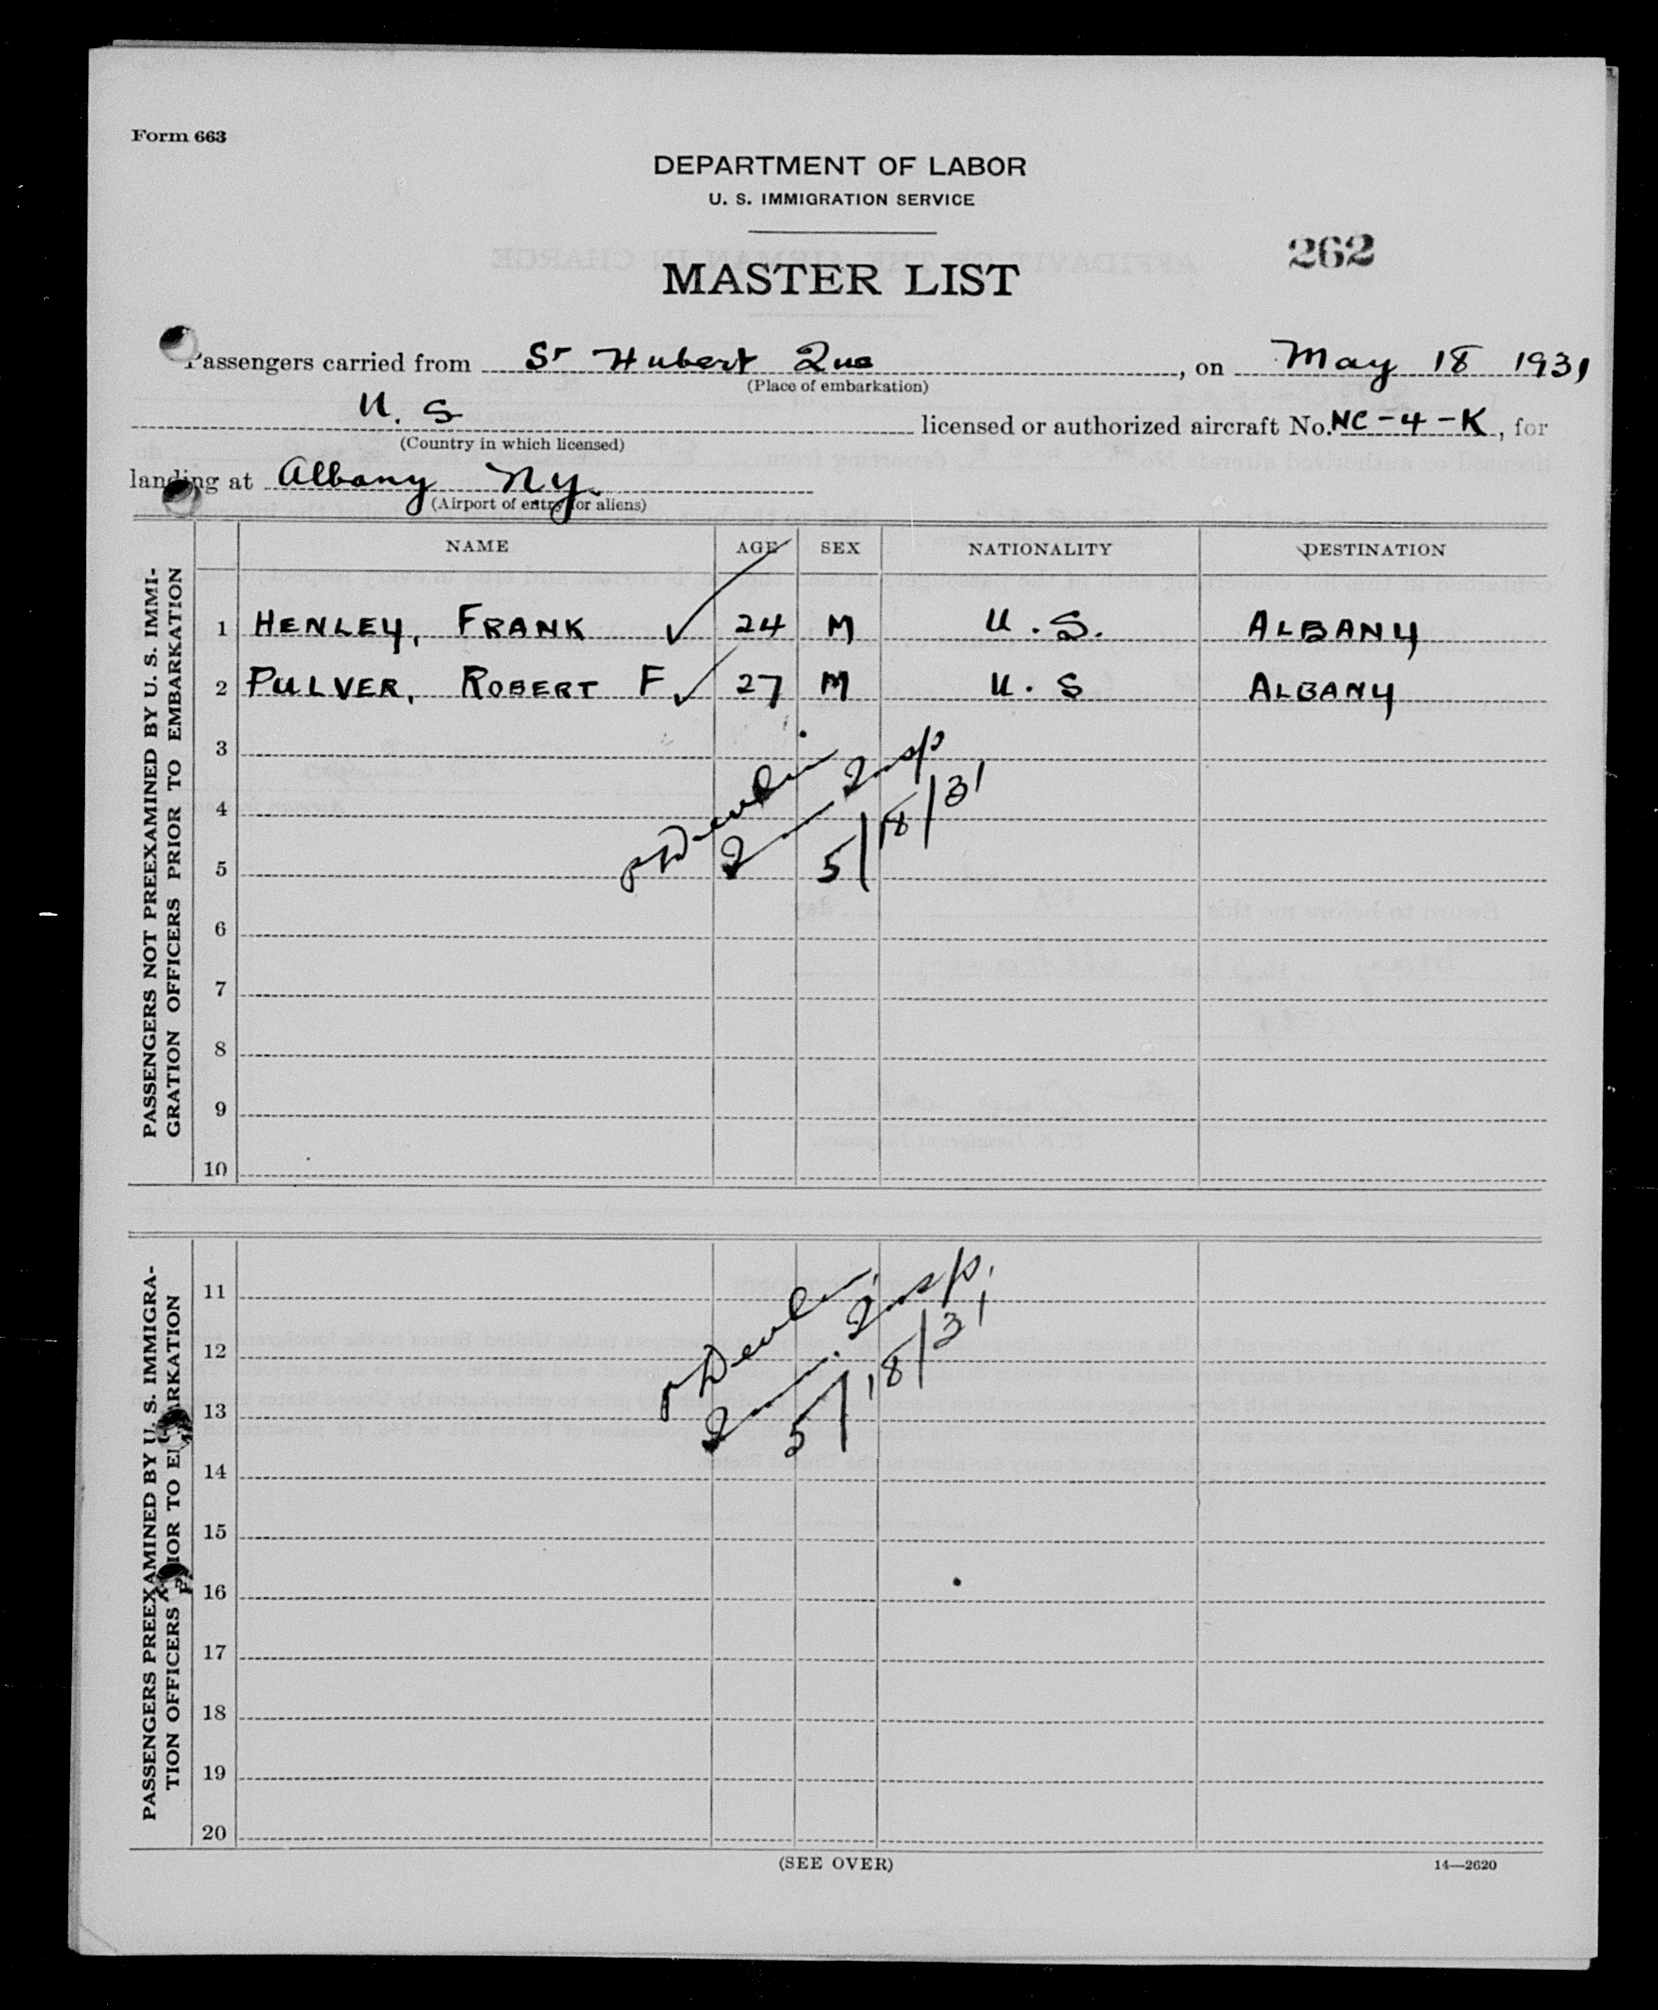 Form 663
DEPARTMENT OF LABOR
U. S. IMMIGRATION SERVICE
262
MASTER LIST
Passengers carried from St Hubert Que, on May 18 1931
(Place of embarkation)
U. S licensed or authorized aircraft No. NC-4-K, for
(Country in which licensed)
landing at Albany Ny.
(Airport of entry for aliens)
NAME AGE SEX NATIONALITY DESTINATION
PASSENGERS NOT PREEXAMINED BY U. S. IMMI-
GRATION OFFICERS PRIOR TO EMBARKATION
1 HENLEY, FRANK ✓ 24 M U.S. ALBANY
2 PULVER, ROBERT F ✓ 27 M U.S ALBANY
3
4
5
Devlin
Insp
5/18/31
6
7
8
9
10
PASSENGERS PREEXAMINED BY U. S. IMMIGRA-
TION OFFICERS PRIOR TO EMBARKATION
11
12
13
Devlin
Insp.
5/18/31
14
15
16
17
18
19
20
(SEE OVER)
14—2620